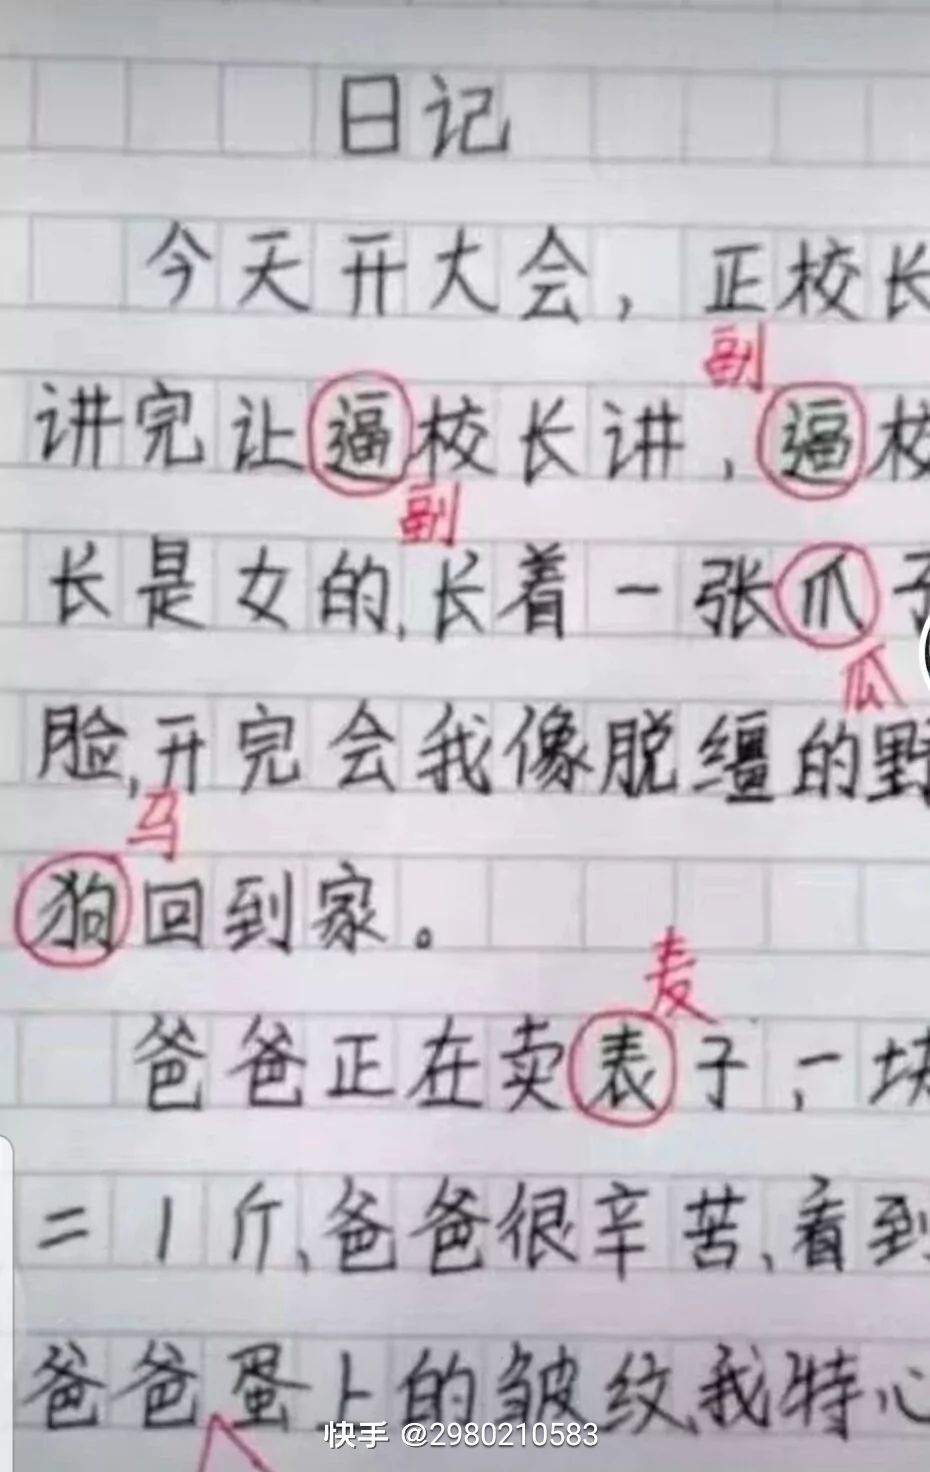 日记
今天开大会，正校长
副
讲完让逼校长讲，逼校
副
长是女的,长着一张爪子
瓜
脸,开完会我像脱缰的野
马
狗回到家。
麦
爸爸正在卖表子,一块
二1斤、爸爸很辛苦、看到
爸爸蛋上的皱纹,我特心
快手 @2980210583